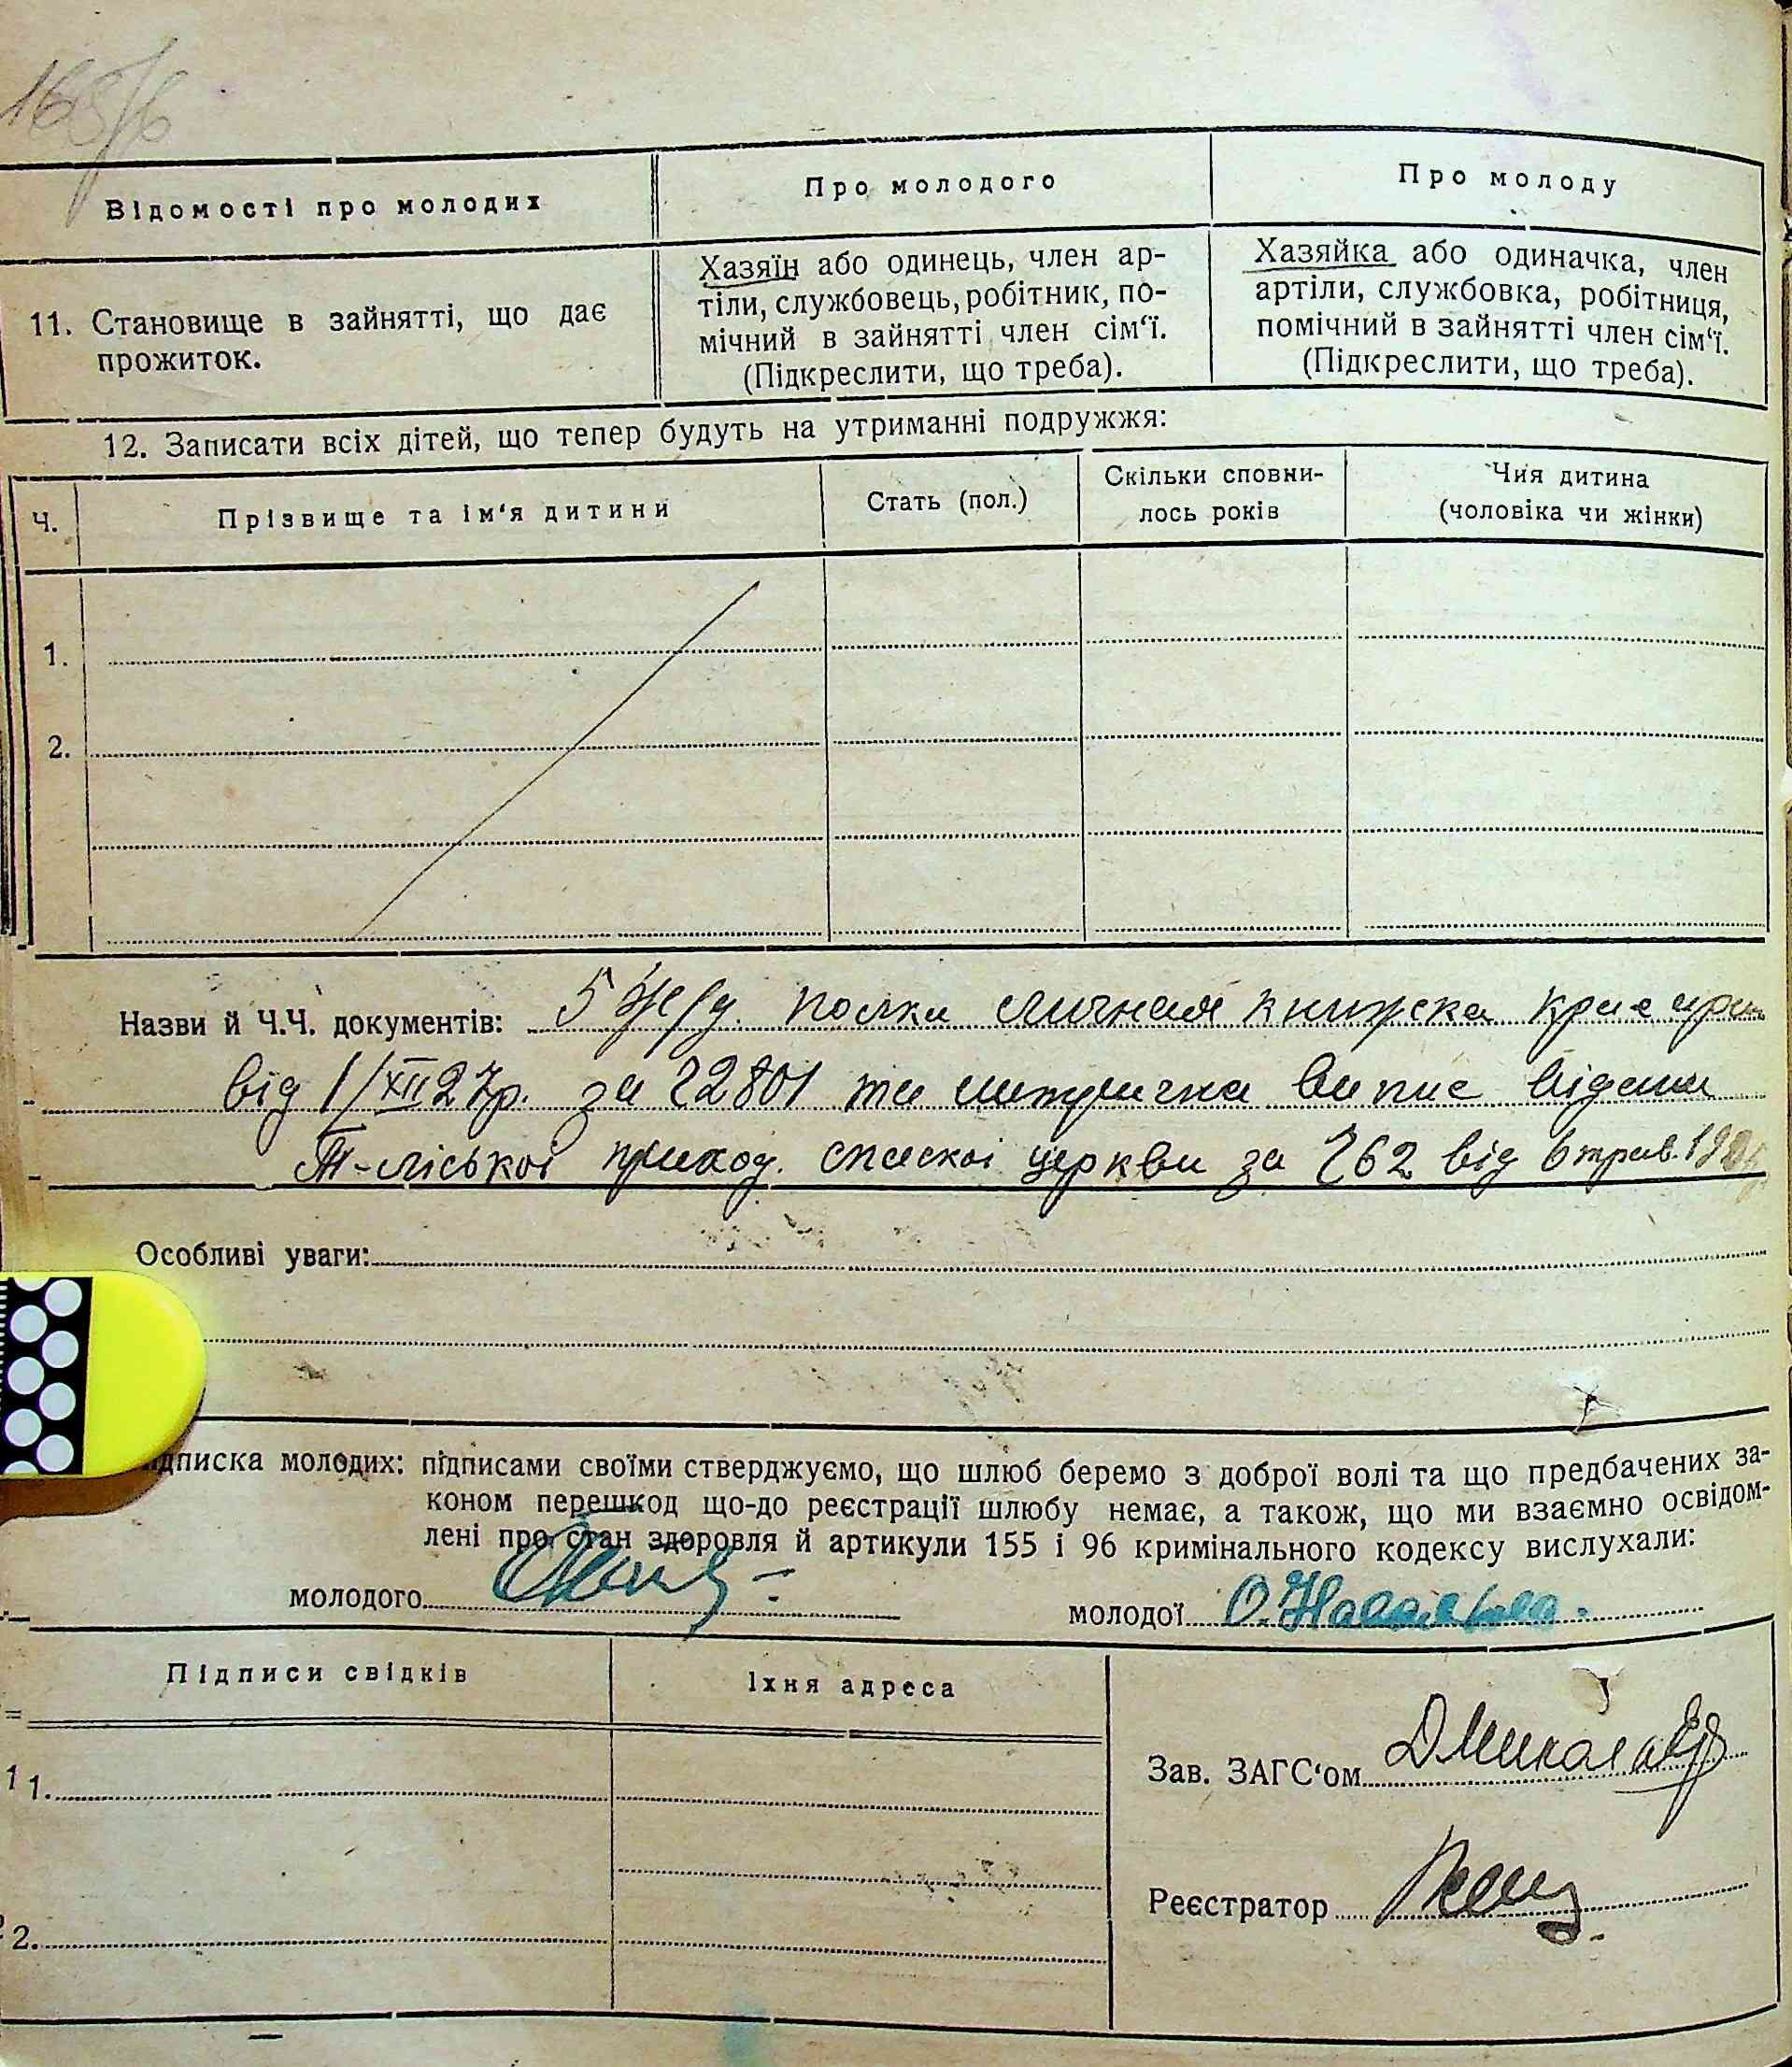 165/6
Відомості про молодих
Про молодого
Про молоду
11. Становище в зайнятті, що дає
прожиток.
Хазяїн або одинець, член ар-
тіли, службовець, робітник, по-
мічний в зайнятті член сім‘ї.
(Підкреслити, що треба).
Хазяйка або одиначка, член
артіли, службовка, робітниця,
помічний в зайнятті член сім‘ї.
(Підкреслити, що треба).
12. Записати всіх дітей, що тепер будуть на утриманні подружжя:
Ч.
Прізвище та ім‘я дитини
Стать (пол.)
Скільки сповни-
лось років
Чия дитина
(чоловіка чи жінки)
1.
2.
Назви й Ч.Ч. документів: 5 полка личная книжска
від 1/XII 27р. за 22801 та метрична випис видана
приход. спаскоі церкви за 262 від 6 трав.
Особливі уваги:
дписка молодих: підписами своїми стверджуємо, що шлюб беремо з доброї волі та що предбачених за-
коном перешкод що-до реєстрації шлюбу немає, а також, що ми взаємно освідом-
лені про стан здоровля й артикули 155 і 96 кримінального кодексу вислухали:
молодого
молодої О.
Підписи свідків
Їхня адреса
1.
2.
Зав. ЗАГС‘ом
Реєстратор